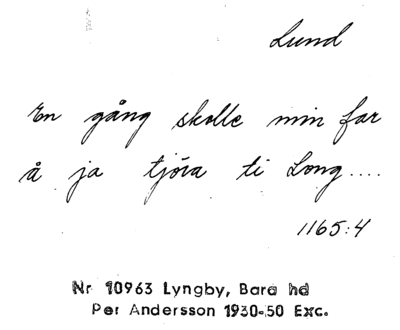 Lund
En gång skolle min far
å ja tjöra ti Long....
1165:4
Nr 10963 Lyngby, Bara hd
Per Andersson 1930-50 Exc.